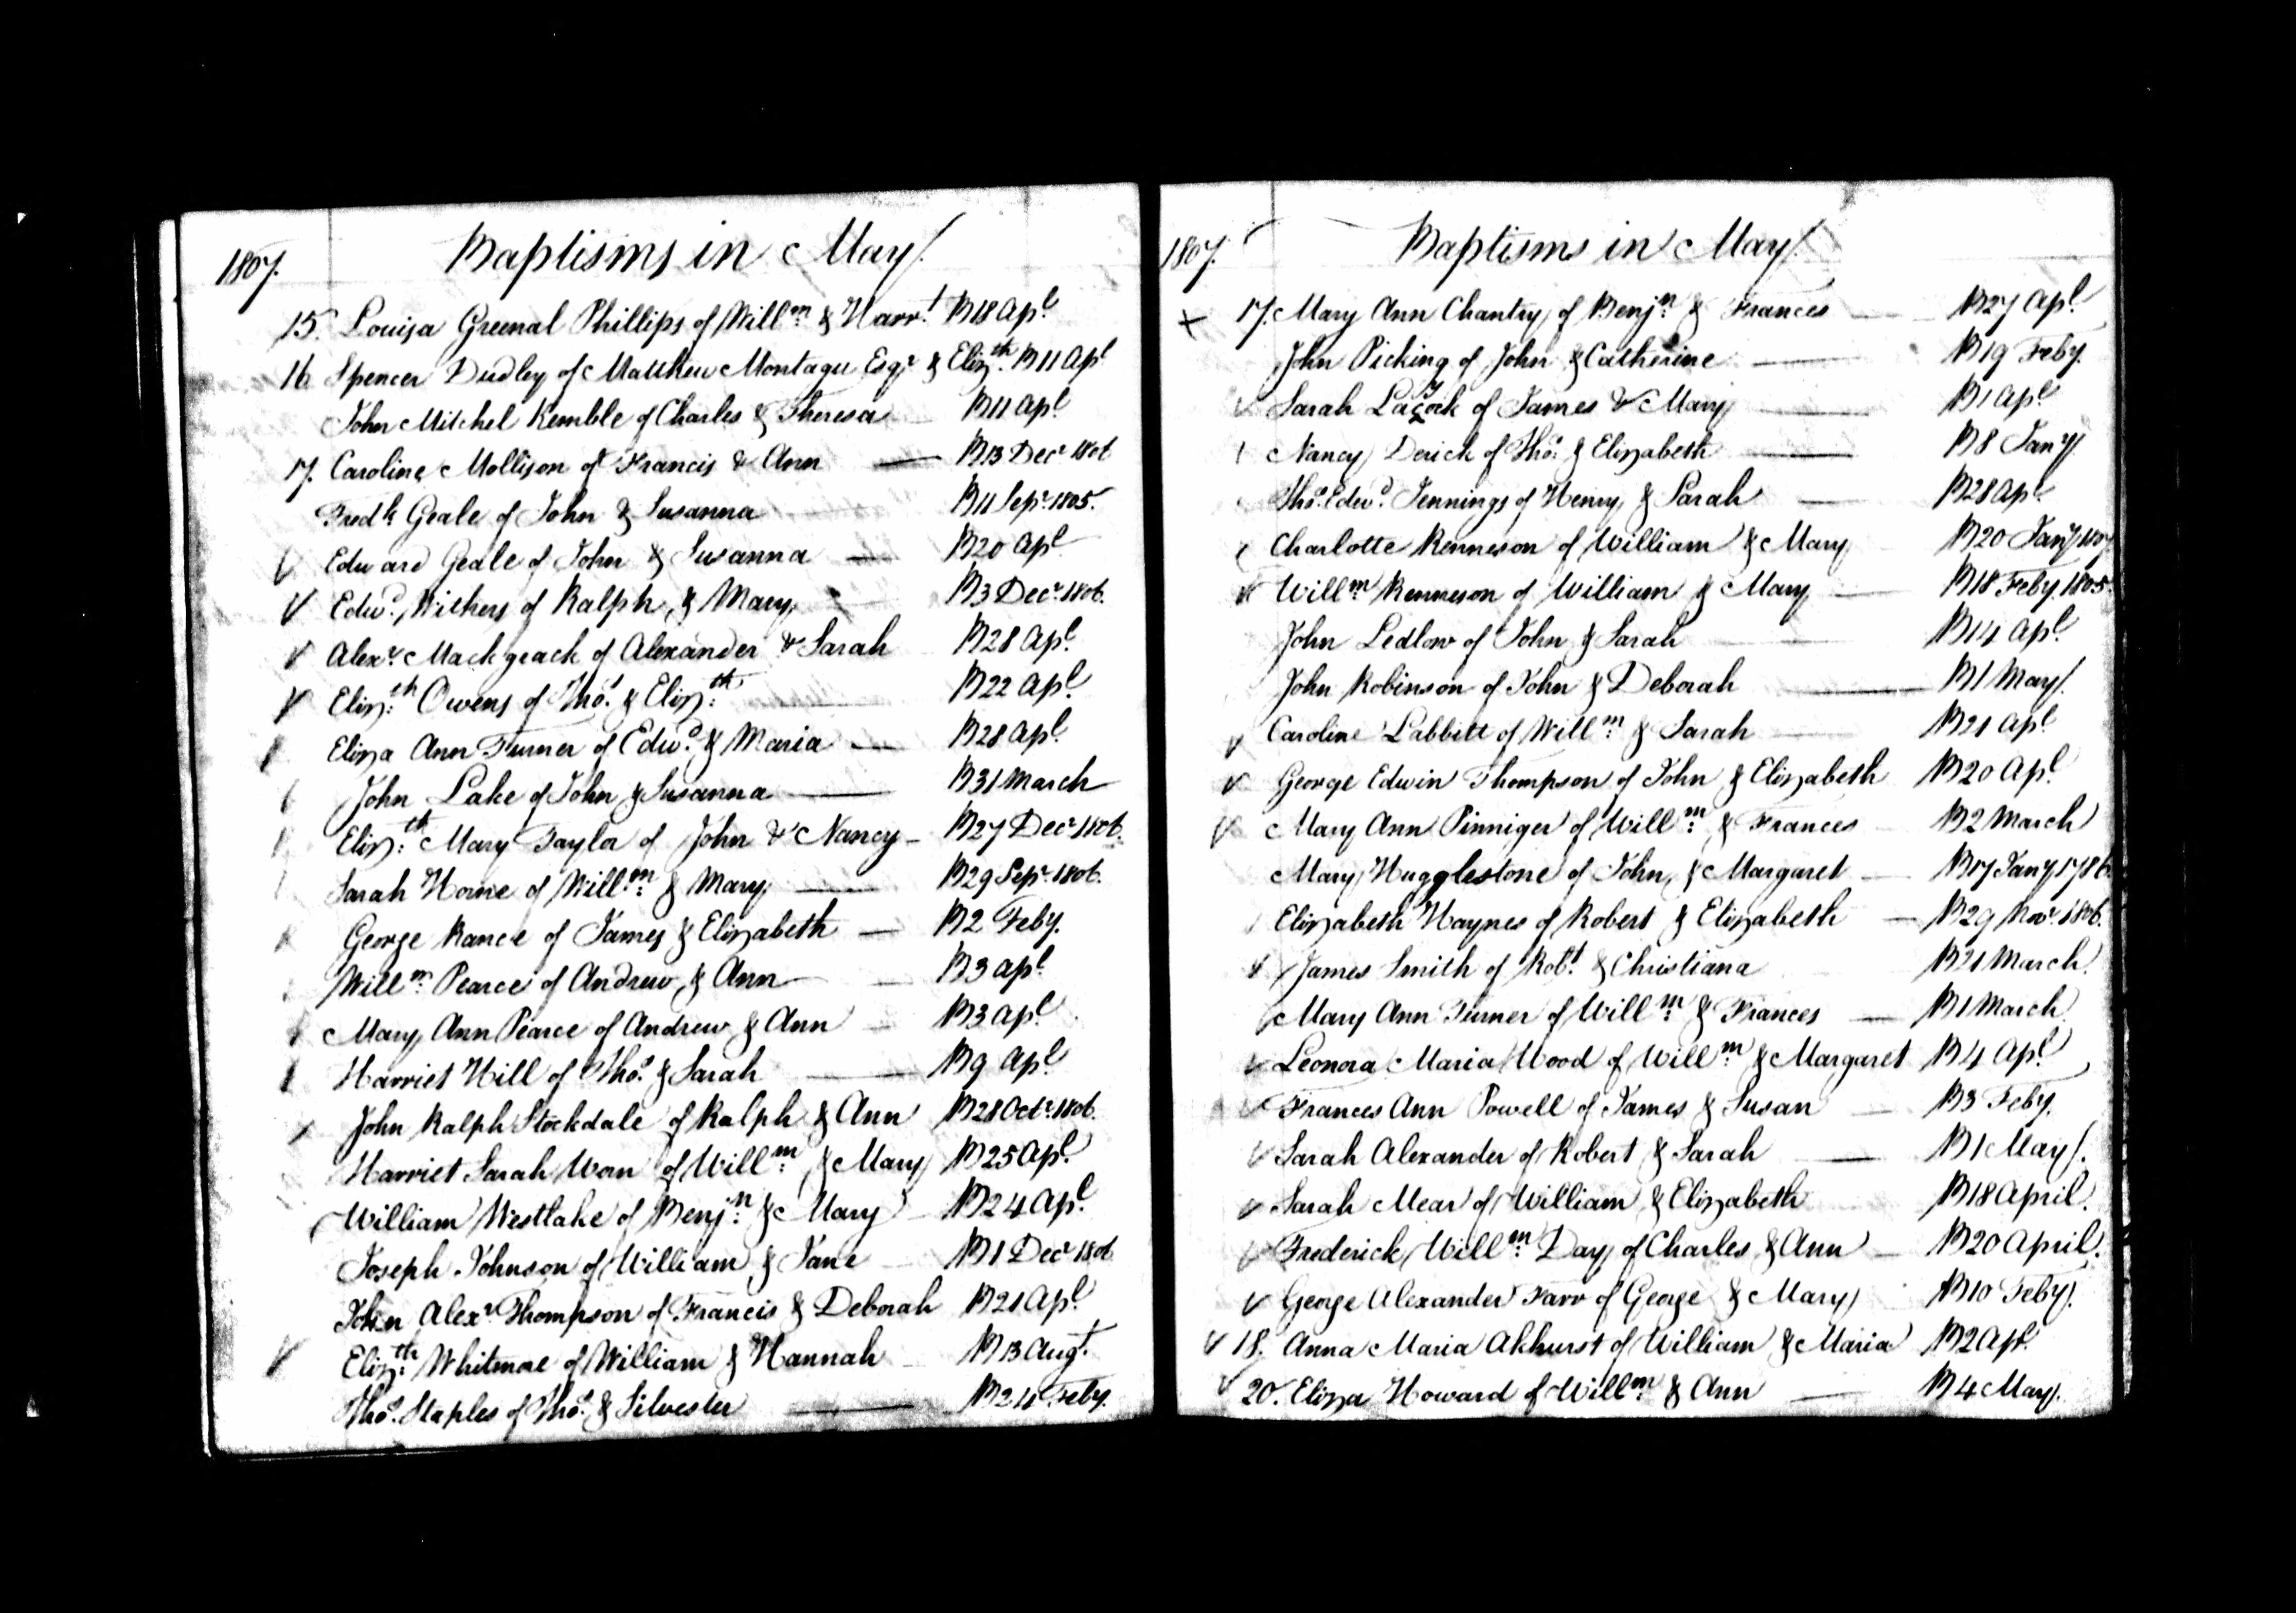 1807. Baptisms in May
15. Louisa Greenal Phillips of Willm & Harrt B 18 Apl
16 Spencer Dudley of Matthew Montagu Esqr & Elizth B 11 Apl
John Mitchel Kemble of Charles & Theresa B 11 Apl
17. Caroline Mollison of Francis & Ann — B 13 Decr 1806
Fredk Geale of John & Susanna B 11 Sepr 1805.
Edward Geale of John & Susanna — B 20 Apl
Edwd Withers of Ralph & Mary B 3 Decr 1806.
Alexr Mackgeack of Alexander & Sarah B 28 Apl
Elizth Owens of Thos & Elizth B 22 Apl
Eliza Ann Turner of Edwd & Maria — B 28 Apl
John Lake of John & Susanna — B 31 March
Elizth Mary Taylor of John & Nancy — B 27 Decr 1806.
Sarah Horne of Willm & Mary — B 29 Sepr 1806.
George Rance of James & Elizabeth — B 2 Feby.
Willm Pearce of Andrew & Ann — B 3 Apl
Mary Ann Pearce of Andrew & Ann — B 3 Apl
Harriet Hill of Thos & Sarah — B 9 Apl
John Ralph Stockdale of Ralph & Ann B 28 Octr 1806.
Harriet Sarah of Willm & Mary B 25 Apl
William Westlake of Benjn & Mary B 24 Apl
Joseph Johnson of William & Jane B 1 Decr 1806
John Alexr Thompson of Francis & Deborah B 21 Apl
Elizth Whitmore of William & Hannah B 13 Augt
Thos Staples of Thos & Silvester — B 24 Feby.
1807. Baptisms in May
17. Mary Ann Chantry of Benjn & Frances — B 27 Apl
John Picking of John & Catherine — B 19 Feby.
Sarah of James & Mary — B 1 Apl
Nancy Derick of Thos & Elizabeth — B 8 Jany
Thos Edwd Jennings of Henry & Sarah — B 28 Apl
Charlotte Renneson of William & Mary B 20 Jany 1807
Willm Renneson of William & Mary — B 18 Feby 1805.
John Ledlow of John & Sarah — B 14 Apl
John Robinson of John & Deborah — B 1 May
Caroline Labbett of Willm & Sarah — B 21 Apl
George Edwin Thompson of John & Elizabeth B 20 Apl
Mary Ann Pinniger of Willm & Frances — B 2 March
Mary Hugglestone of John & Margaret — B 17 Jany 1786.
Elizabeth Haynes of Robert & Elizabeth — B 29 Novr 1806.
James Smith of Robt & Christiana B 21 March.
Mary Ann Turner of Willm & Frances — B 1 March.
Leonora Maria Wood of Willm & Margaret B 4 Apl
Frances Ann Powell of James & Susan — B 3 Feby.
Sarah Alexander of Robert & Sarah — B 1 May
Sarah Mear of William & Elizabeth B 18 April.
Frederick Willm Day of Charles & Ann — B 20 April.
George Alexander Farr of George & Mary B 10 Feby.
18. Anna Maria Akhurst of William & Maria B 2 Apl
20. Eliza Howard of Willm & Ann — B 4 May.